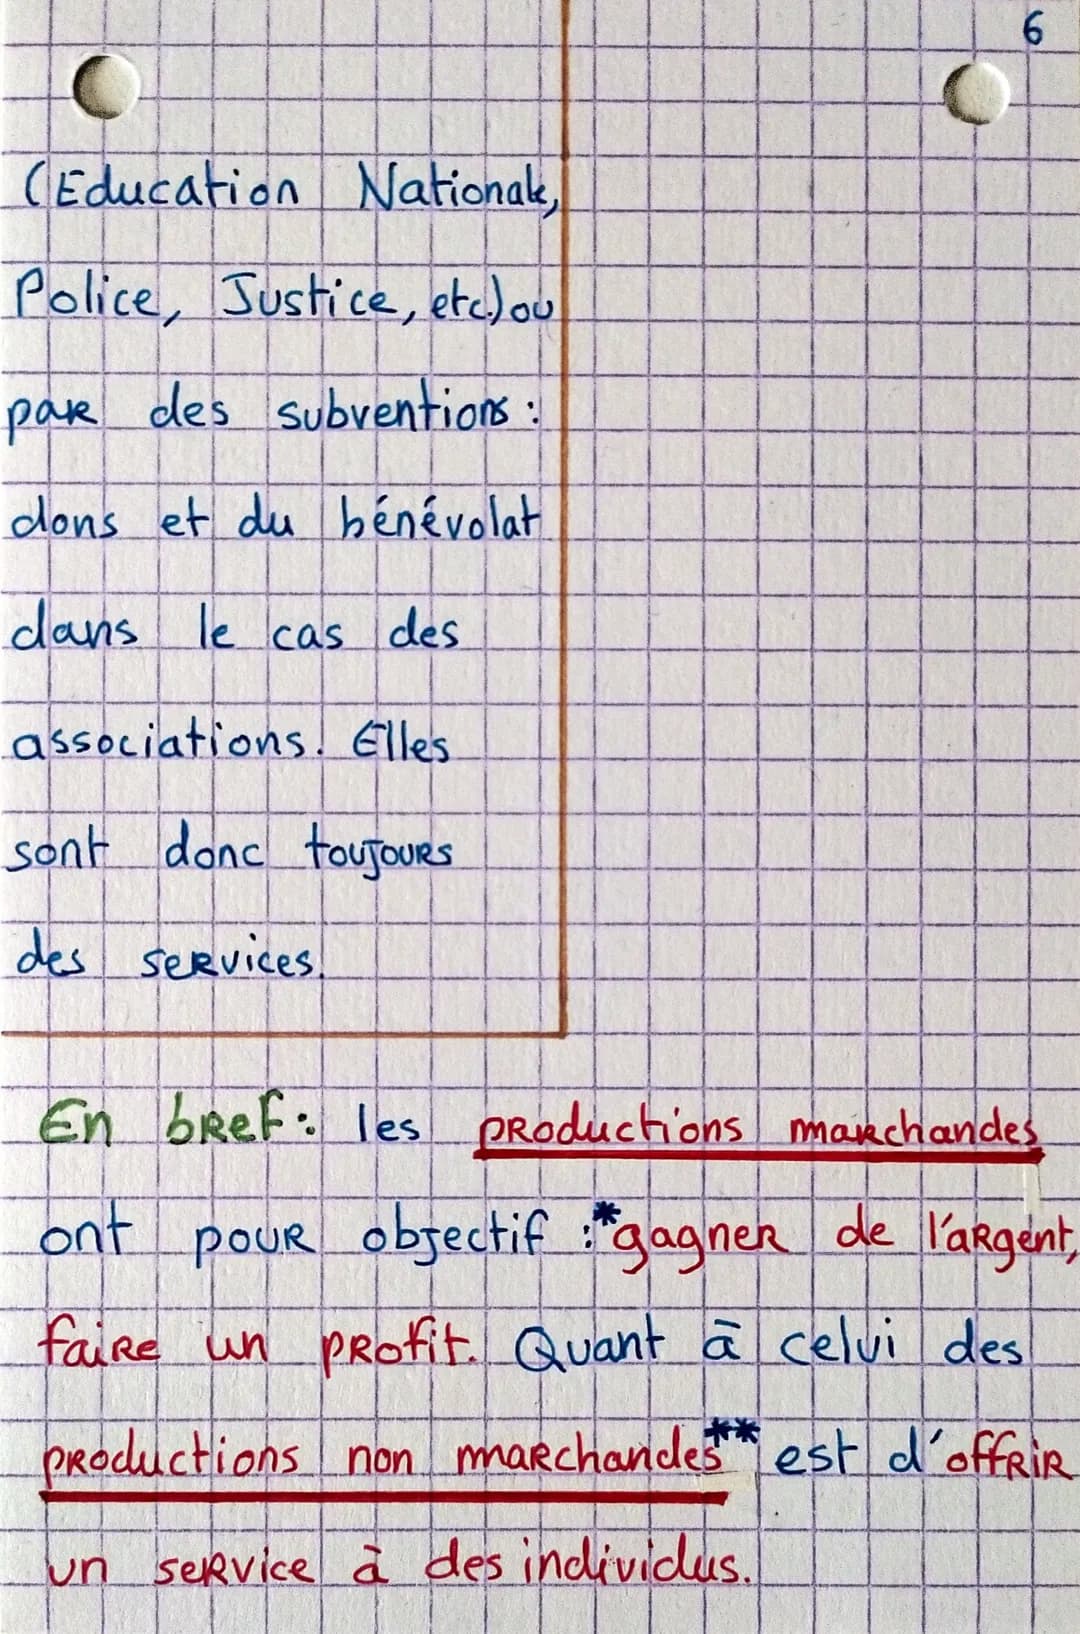 6
(Education Nationale,
Police, Justice, etc.) ou
par des subventions :
dons et du bénévolat
dans le cas des
associations. Elles
sont donc toujours
des services.
En bref : les productions marchandes
ont pour objectif :*gagner de l'argent,
faire un profit. Quant à celui des
productions non marchandes** est d'offrir
un service à des individus.